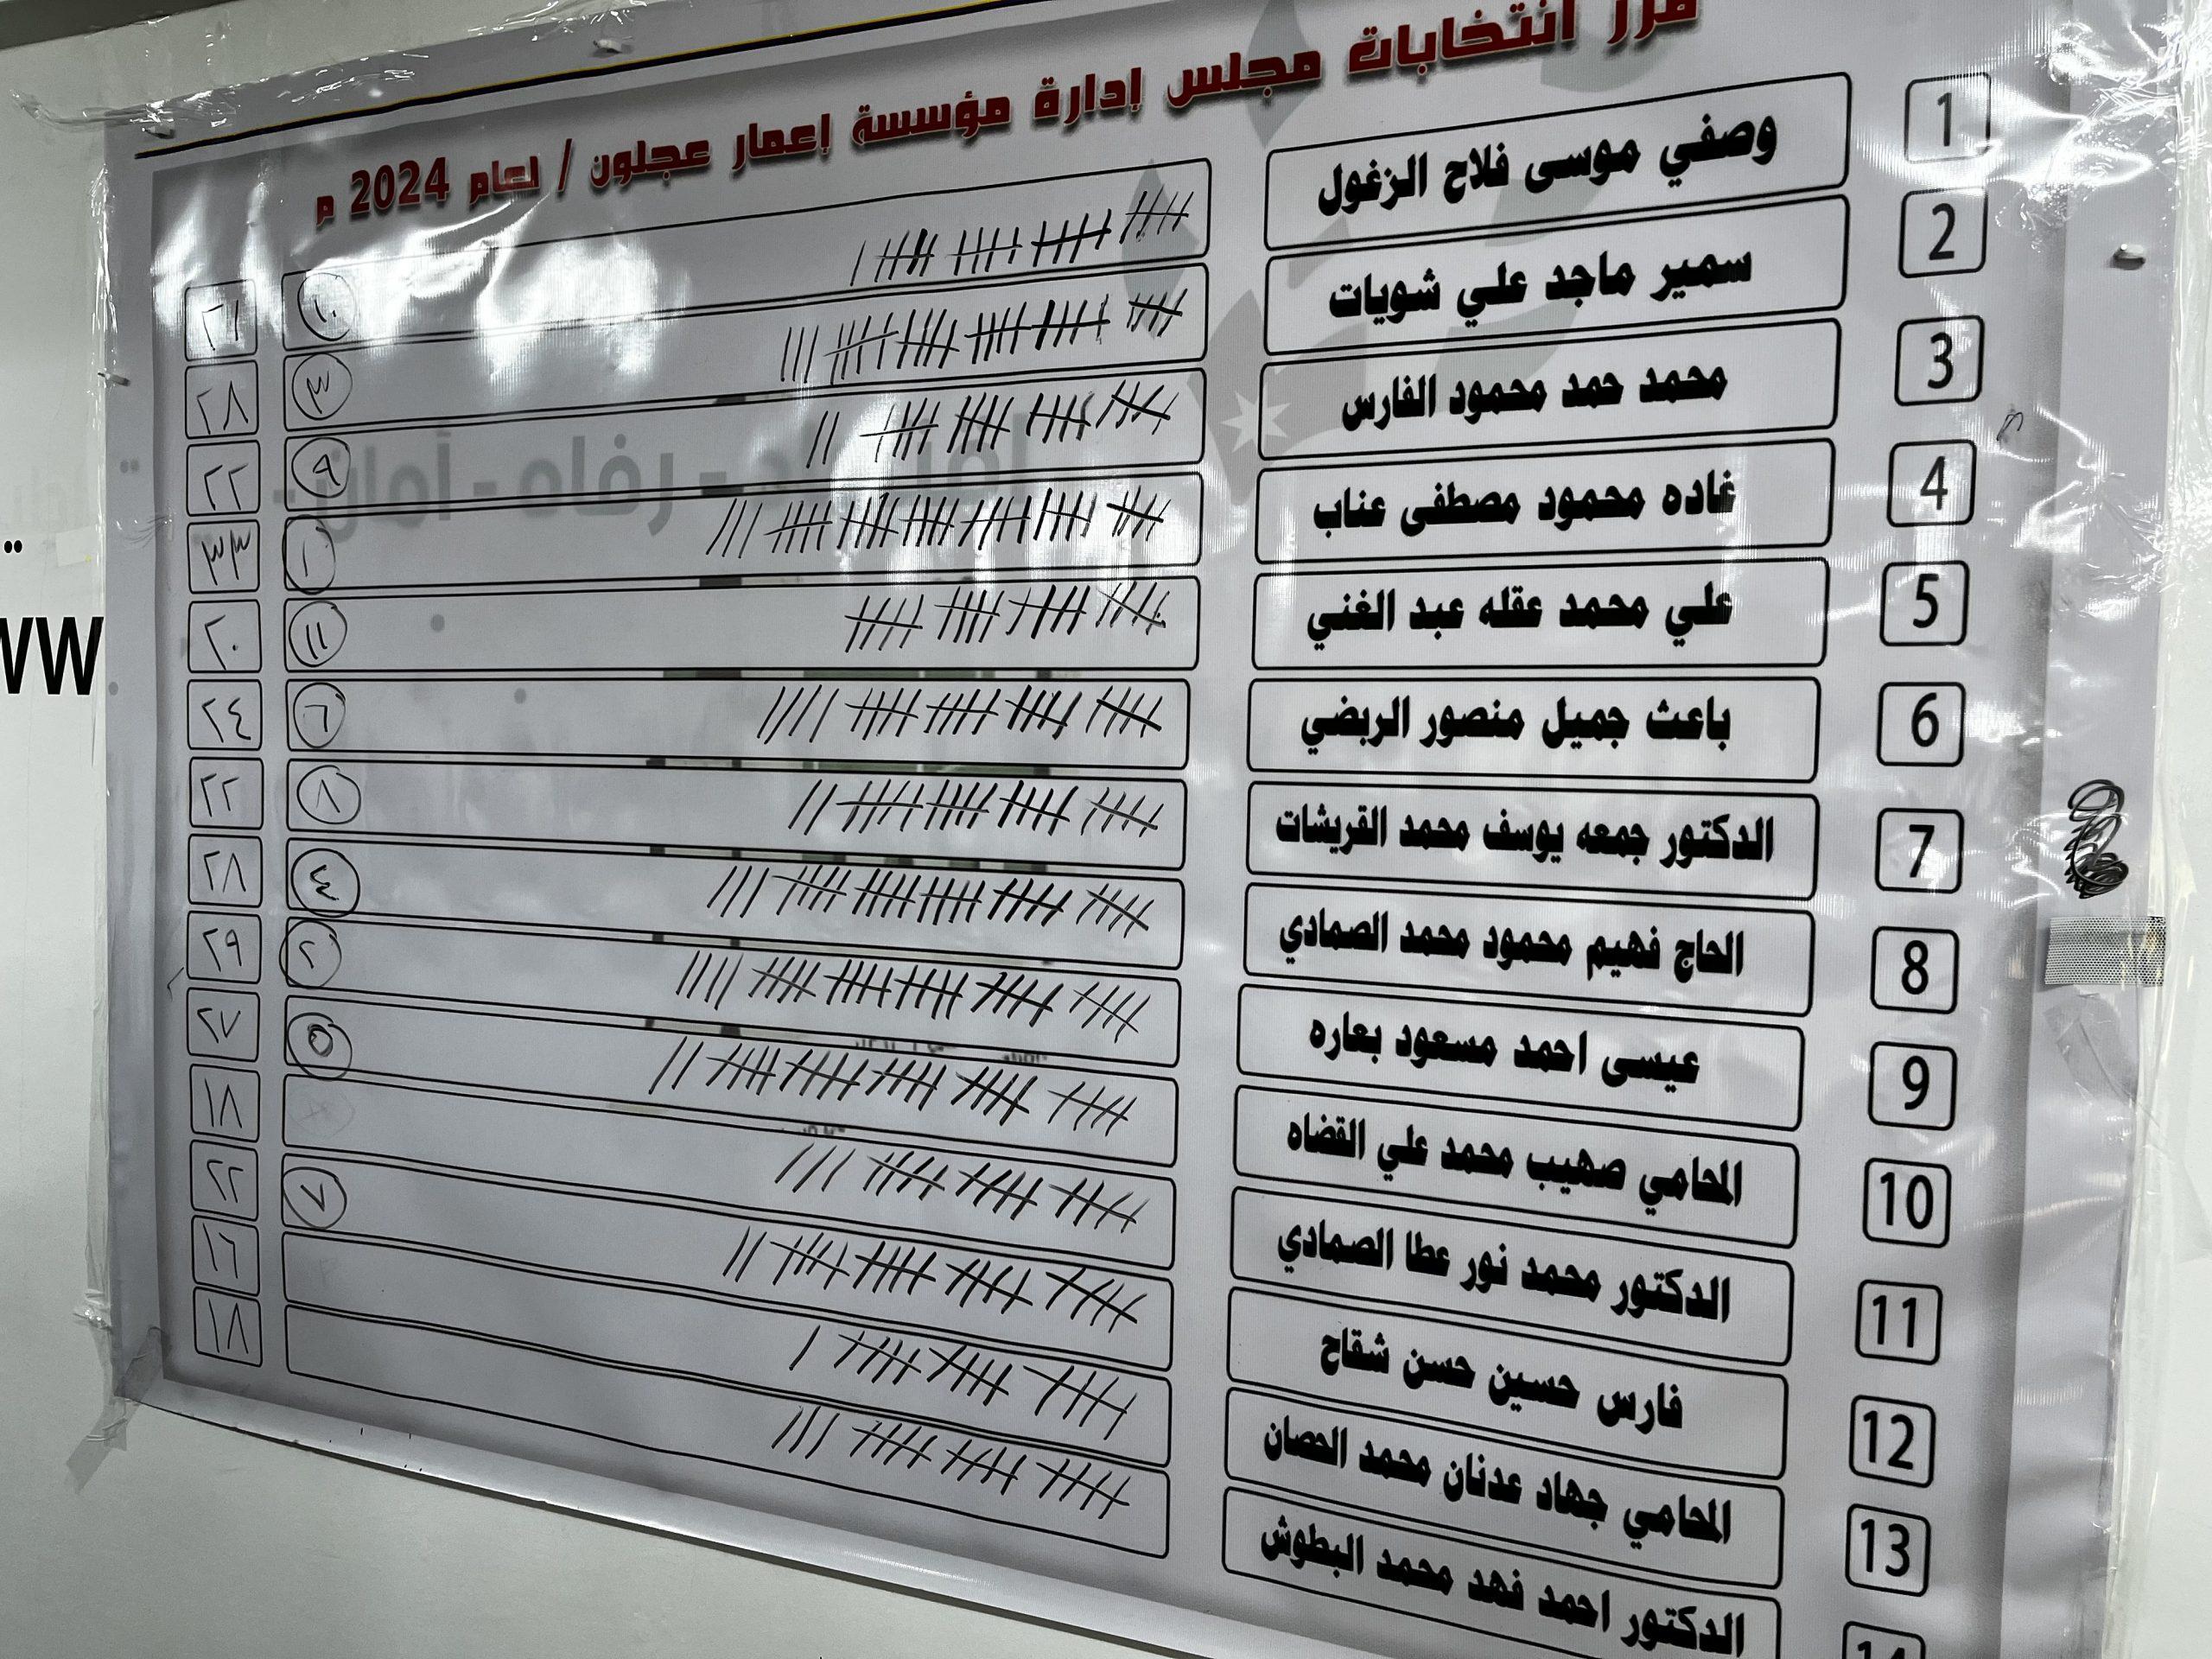 فرز انتخابات مجلس إدارة مؤسسة إعمار عجلون / لعام 2024 م
1 وصفي موسى فلاح الزغول ١٠ ٢١
2 سمير ماجد علي شويات ٣ ٢٨
3 محمد حمد محمود الفارس ٩ ٢٢
4 غاده محمود مصطفى عناب ١ ٣٣
5 علي محمد عقله عبد الغني ١١ ٢٠
6 باعث جميل منصور الربضي ٦ ٢٤
7 الدكتور جمعه يوسف محمد القريشات ٨ ٢٢
8 الحاج فهيم محمود محمد الصمادي ٤ ٢٨
9 عيسى احمد مسعود بعاره ٢ ٢٩
10 المحامي صهيب محمد علي القضاه ٥ ٢٧
11 الدكتور محمد نور عطا الصمادي ١٨
12 فارس حسين حسن شقاح ٧ ٢٢
13 المحامي جهاد عدنان محمد الحصان ١٦
14 الدكتور احمد فهد محمد البطوش ١٨
- رفاه - أمان -